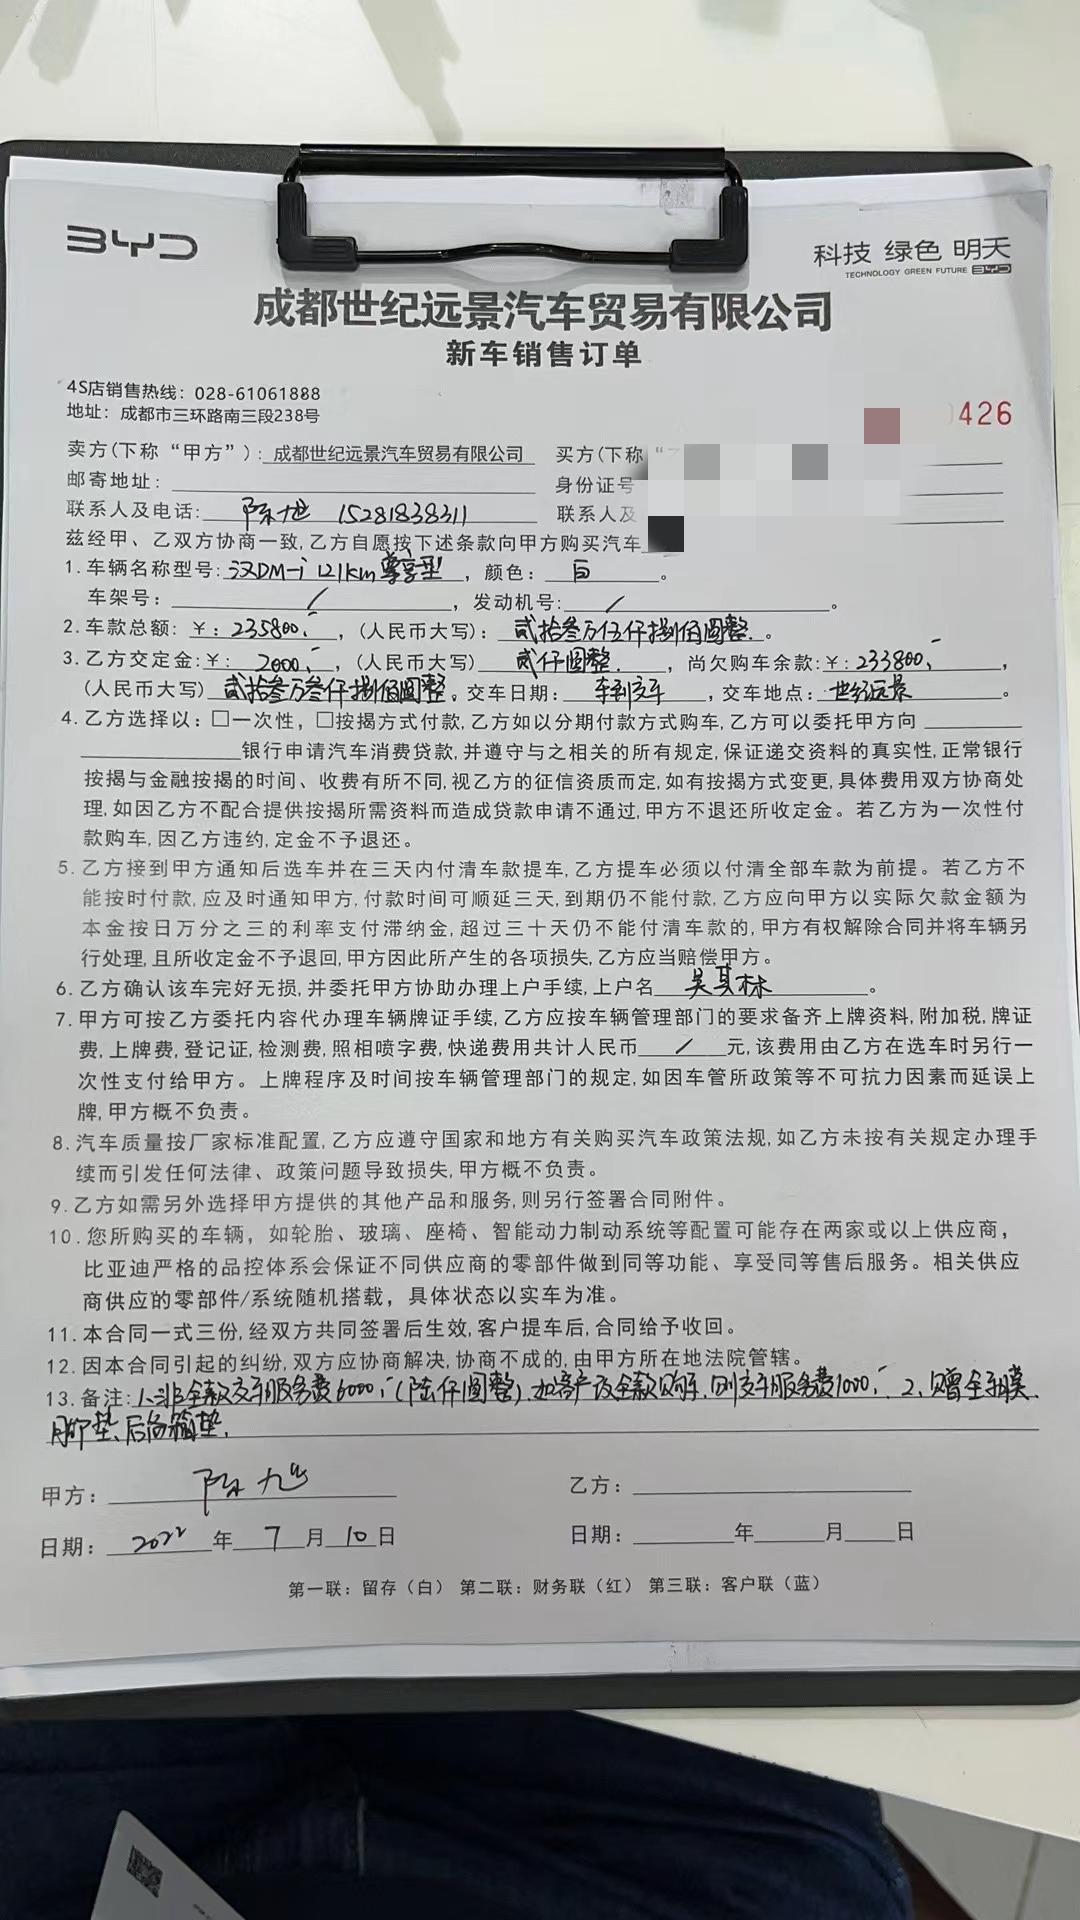 BYD
科技 绿色 明天
TECHNOLOGY GREEN FUTURE BYD
成都世纪远景汽车贸易有限公司
新车销售订单
4S店销售热线：028-61061888
地址：成都市三环路南三段238号
426
卖方(下称“甲方”)：成都世纪远景汽车贸易有限公司 买方(下称“
邮寄地址： 身份证号
联系人及电话：陈旭 15281838311 联系人及
兹经甲、乙双方协商一致,乙方自愿按下述条款向甲方购买汽车
1.车辆名称型号：汉DM-i 121km尊享型，颜色：白。
车架号：/，发动机号：/。
2.车款总额：¥：235800，(人民币大写)：贰拾叁万伍仟捌佰圆整。
3.乙方交定金：¥：2000，(人民币大写)贰仟圆整，尚欠购车余款：¥：233800，
(人民币大写)贰拾叁万叁仟捌佰圆整。交车日期：车到交车，交车地点：世纪远景。
4.乙方选择以：□一次性，□按揭方式付款,乙方如以分期付款方式购车,乙方可以委托甲方向
银行申请汽车消费贷款,并遵守与之相关的所有规定,保证递交资料的真实性,正常银行
按揭与金融按揭的时间、收费有所不同,视乙方的征信资质而定,如有按揭方式变更,具体费用双方协商处
理,如因乙方不配合提供按揭所需资料而造成贷款申请不通过,甲方不退还所收定金。若乙方为一次性付
款购车,因乙方违约,定金不予退还。
5.乙方接到甲方通知后选车并在三天内付清车款提车,乙方提车必须以付清全部车款为前提。若乙方不
能按时付款,应及时通知甲方,付款时间可顺延三天,到期仍不能付款,乙方应向甲方以实际欠款金额为
本金按日万分之三的利率支付滞纳金,超过三十天仍不能付清车款的,甲方有权解除合同并将车辆另
行处理,且所收定金不予退回,甲方因此所产生的各项损失,乙方应当赔偿甲方。
6.乙方确认该车完好无损,并委托甲方协助办理上户手续,上户名吴其林。
7.甲方可按乙方委托内容代办理车辆牌证手续,乙方应按车辆管理部门的要求备齐上牌资料,附加税,牌证
费,上牌费,登记证,检测费,照相喷字费,快递费用共计人民币/元,该费用由乙方在选车时另行一
次性支付给甲方。上牌程序及时间按车辆管理部门的规定,如因车管所政策等不可抗力因素而延误上
牌,甲方概不负责。
8.汽车质量按厂家标准配置,乙方应遵守国家和地方有关购买汽车政策法规,如乙方未按有关规定办理手
续而引发任何法律、政策问题导致损失,甲方概不负责。
9.乙方如需另外选择甲方提供的其他产品和服务,则另行签署合同附件。
10.您所购买的车辆，如轮胎、玻璃、座椅、智能动力制动系统等配置可能存在两家或以上供应商，
比亚迪严格的品控体系会保证不同供应商的零部件做到同等功能、享受同等售后服务。相关供应
商供应的零部件/系统随机搭载，具体状态以实车为准。
11.本合同一式三份,经双方共同签署后生效,客户提车后,合同给予收回。
12.因本合同引起的纠纷,双方应协商解决,协商不成的,由甲方所在地法院管辖。
13.备注：1、非全款交车服务费6000(陆仟圆整).如客户改全款购车,则交车服务费1000. 2、赠全车膜、
脚垫、后备箱垫.
甲方：陈旭 乙方：
日期：2022年7月10日 日期： 年 月 日
第一联：留存（白） 第二联：财务联（红） 第三联：客户联（蓝）